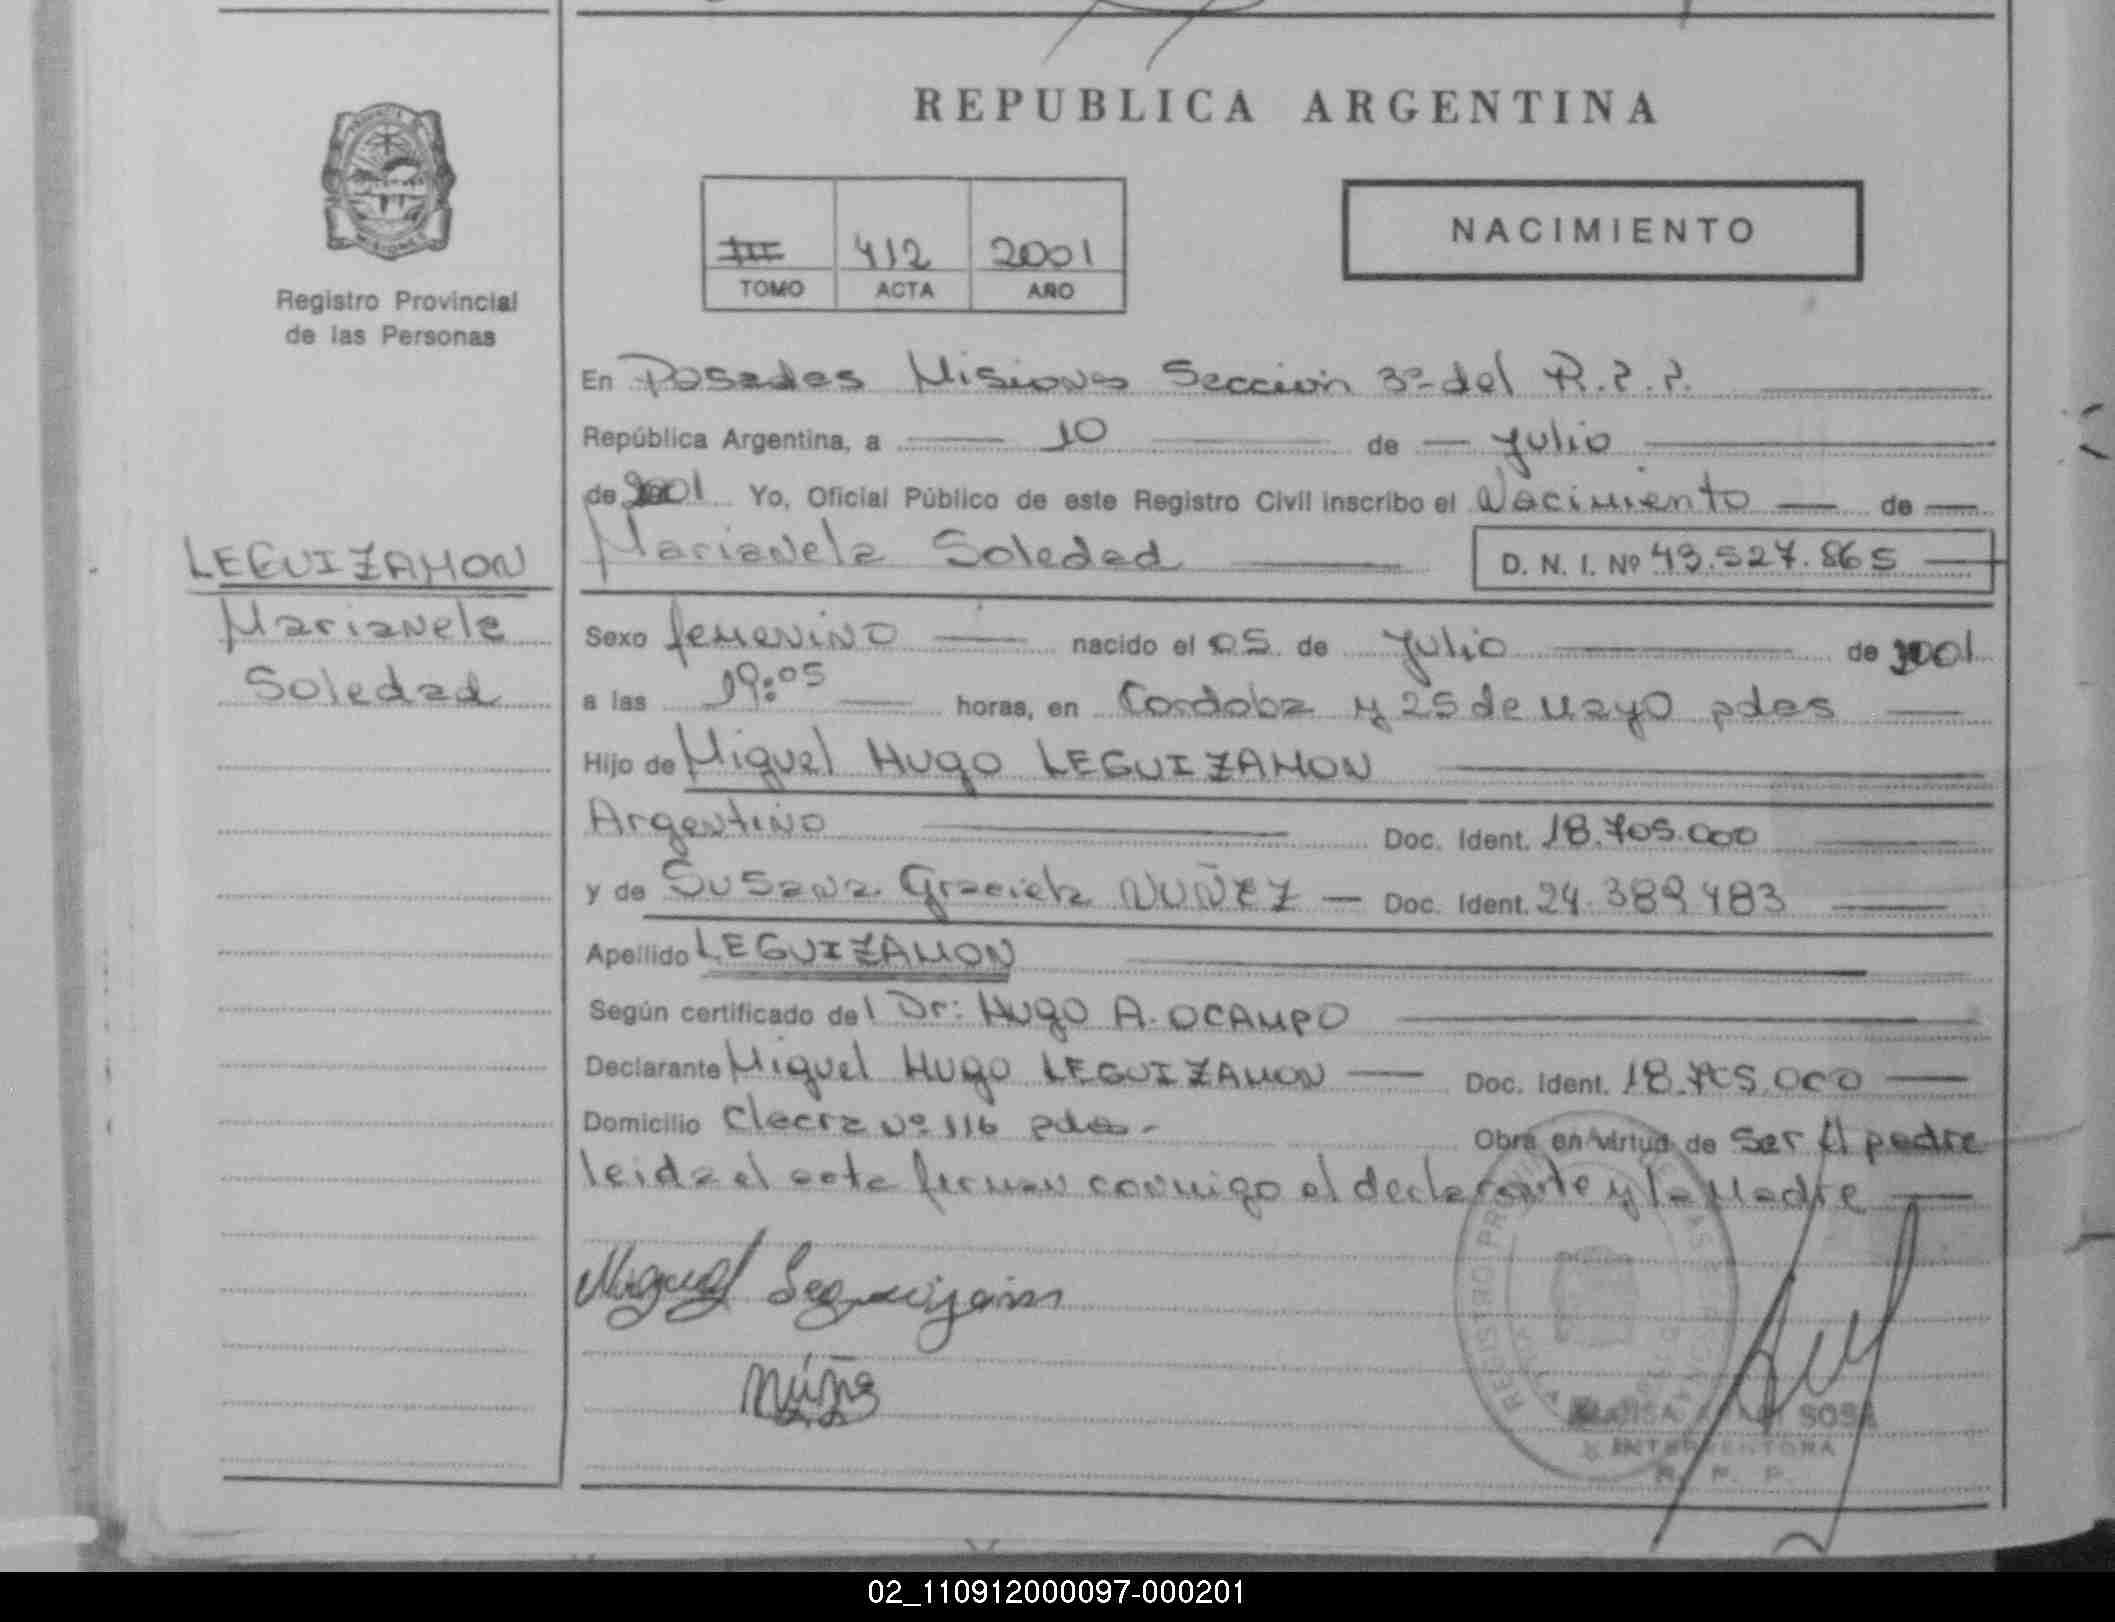 REPUBLICA ARGENTINA
NACIMIENTO
III 412 2001
TOMO ACTA AÑO
Registro Provincial
de las Personas
LEGUIZAMON
Marianela
Soledad
En Posadas Misiones Sección 3ª del R.P.P.
República Argentina, a 10 de Julio
de 2001 Yo, Oficial Público de este Registro Civil inscribo el Nacimiento de
Marianela Soledad D. N. I. Nº 43.527.865
Sexo femenino nacido el 05 de Julio de 2001
a las 19:05 horas, en Cordoba y 25 de Mayo pdas
Hijo de Miguel Hugo LEGUIZAMON
Argentino Doc. Ident. 18.705.000
y de Susana Graciela NUÑEZ Doc. Ident. 24.389.483
Apellido LEGUIZAMON
Según certificado del Dr: Hugo A. OCAMPO
Declarante Miguel Hugo LEGUIZAMON Doc. Ident. 18.705.000
Domicilio Chacra Nº 116 pdas.- Obra en virtud de ser el padre
leida el acta firman conmigo el declarante y la Madre
Miguel Leguizamon
Núñez
REGISTRO PROVINCIAL DE LAS PERSONAS
SOSA
INTERVENTORA
R. P. P.
02_110912000097-000201